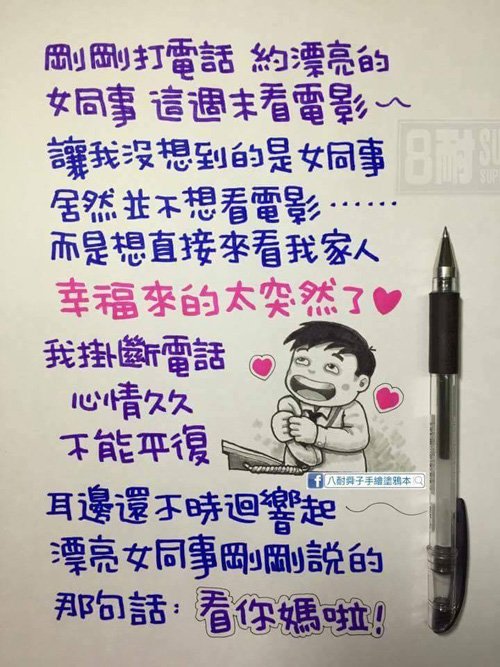 剛剛打電話 約漂亮的
女同事 這週末看電影~
讓我沒想到的是女同事
居然並不想看電影……
而是想直接來看我家人
幸福來的太突然了♥
我掛斷電話
心情久久
不能平復
耳邊還不時迴響起
漂亮女同事剛剛說的
那句話：看你媽啦！
f 八耐舜子手繪塗鴉本
8耐 SU
SUP